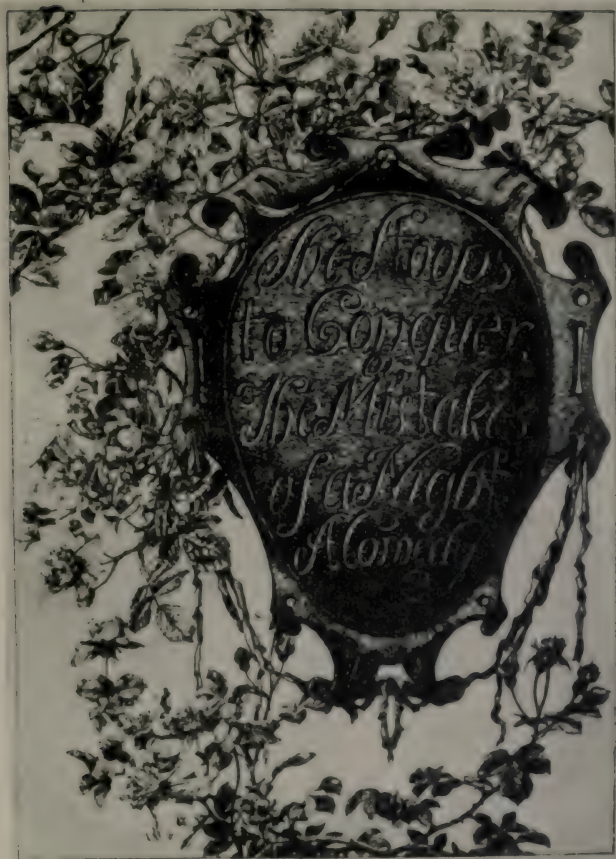 She Stoops
to Conquer,
or
The Mistakes
of a Night
A Comedy